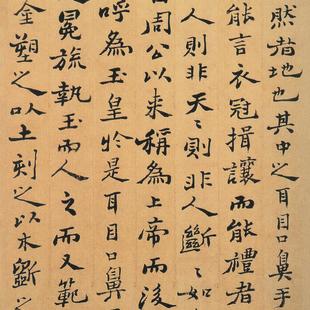 然者地也其中之耳目口鼻手
能言衣冠揖讓而能禮者
人則非天〻則非人斷〻如
周公以來稱為上帝而後
呼為玉皇於是耳目口鼻
冕旒執玉而人之而又範
金塑之以土刻之以木斲之